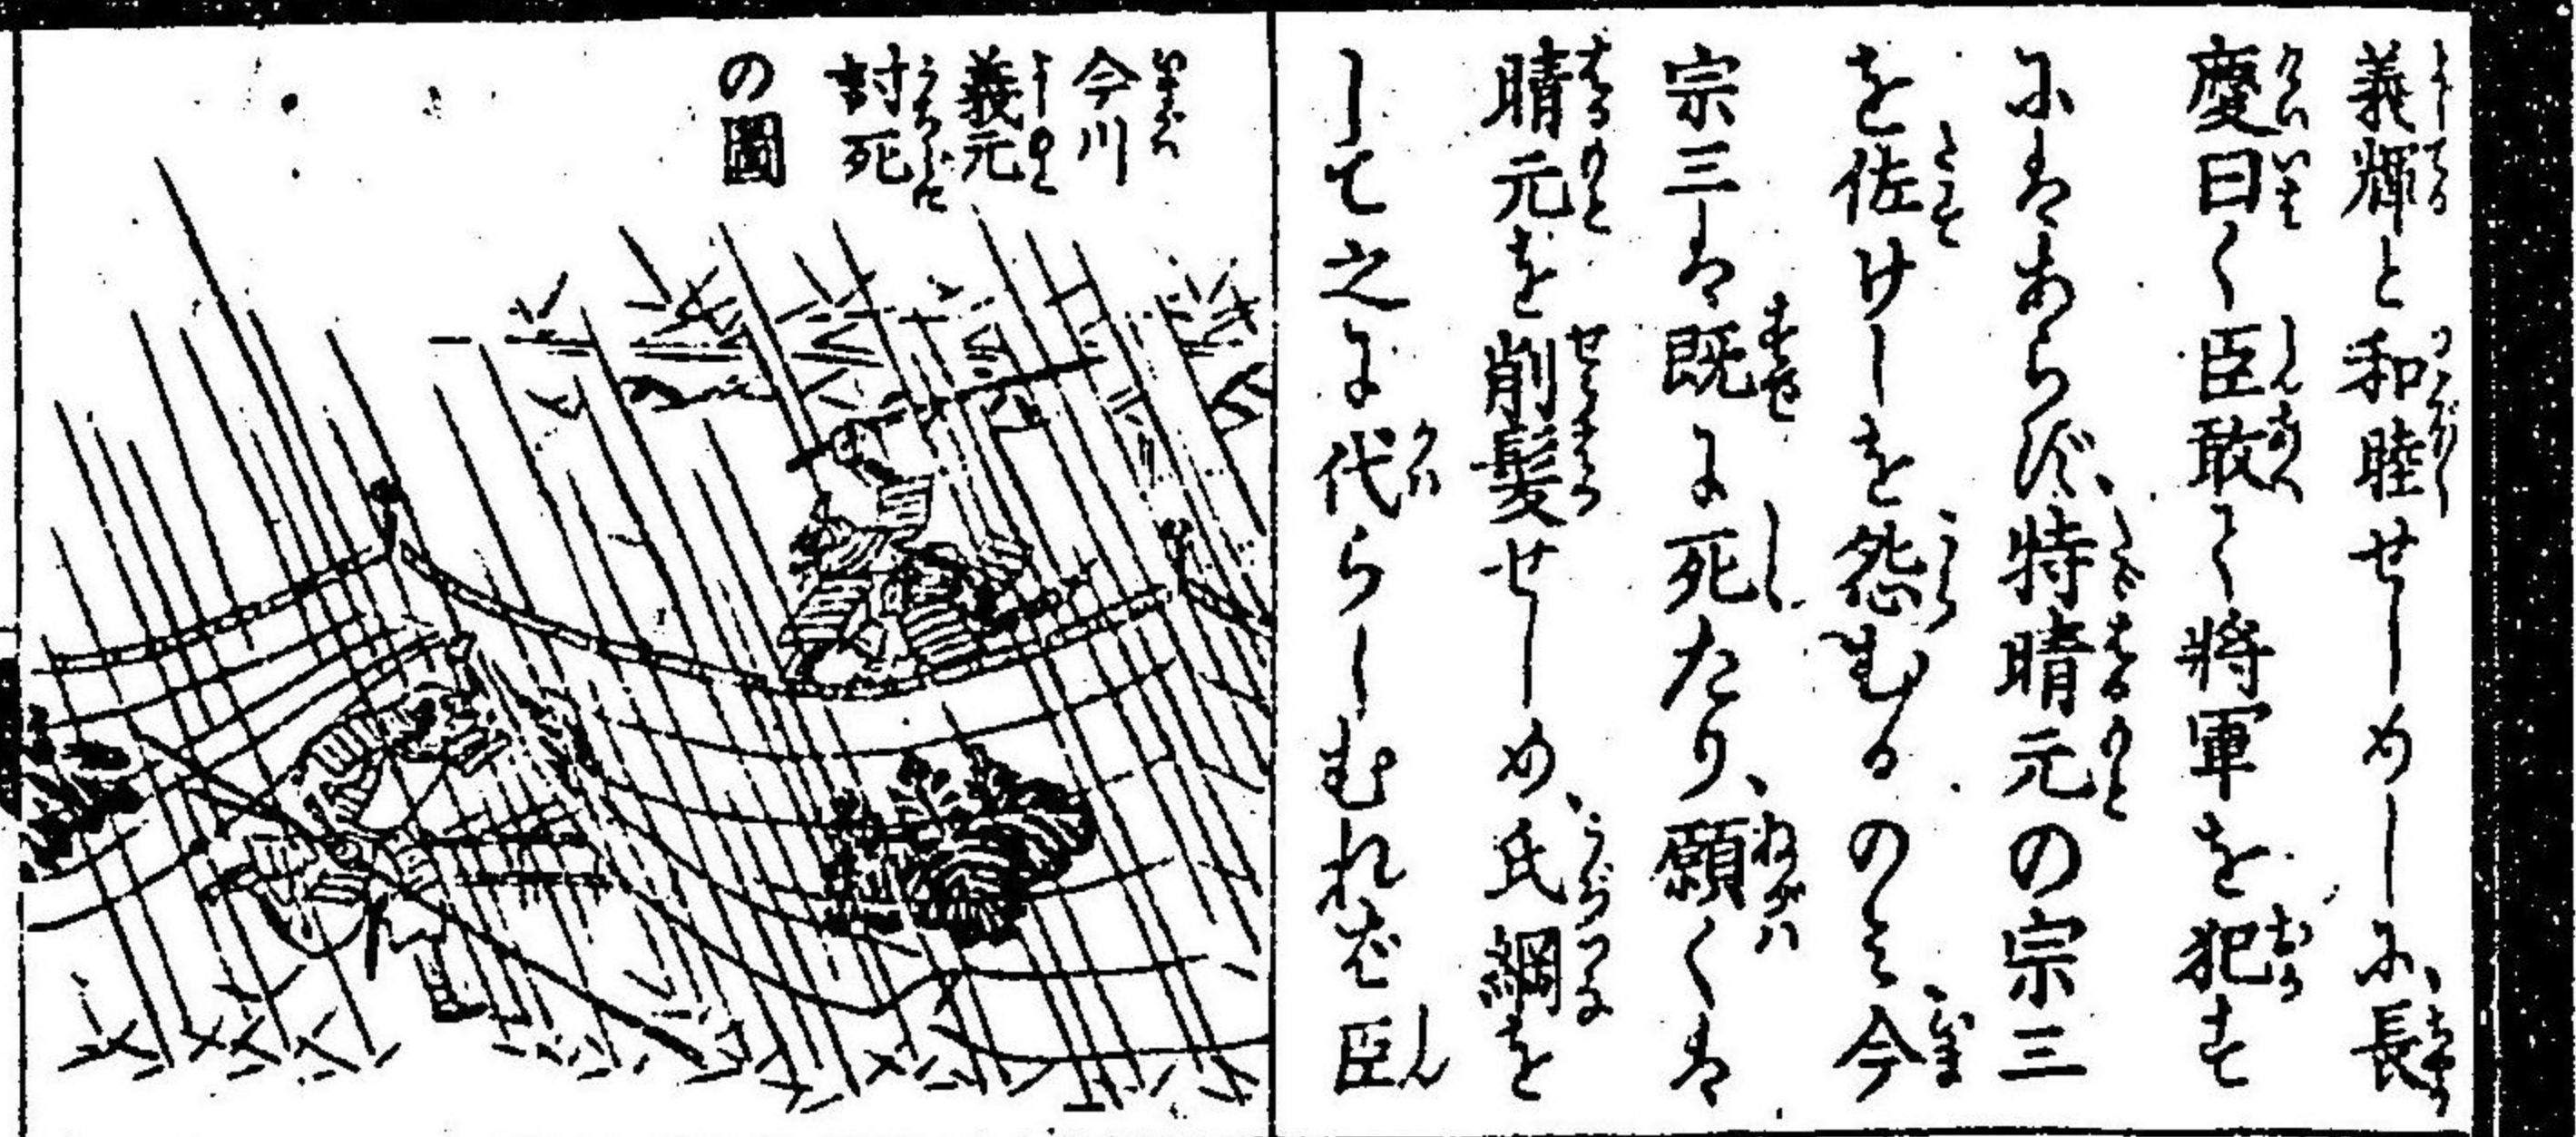 義輝と和睦せしめしに、長
慶曰く臣敢て將軍を犯す
にはあらず、特晴元の宗三
を佐けしを怨むるのみ今
宗三は既に死たり、願くは
晴元を削髮せしめ、氏綱を
して之に代らしむれば臣
今川
義元
討死
の圖